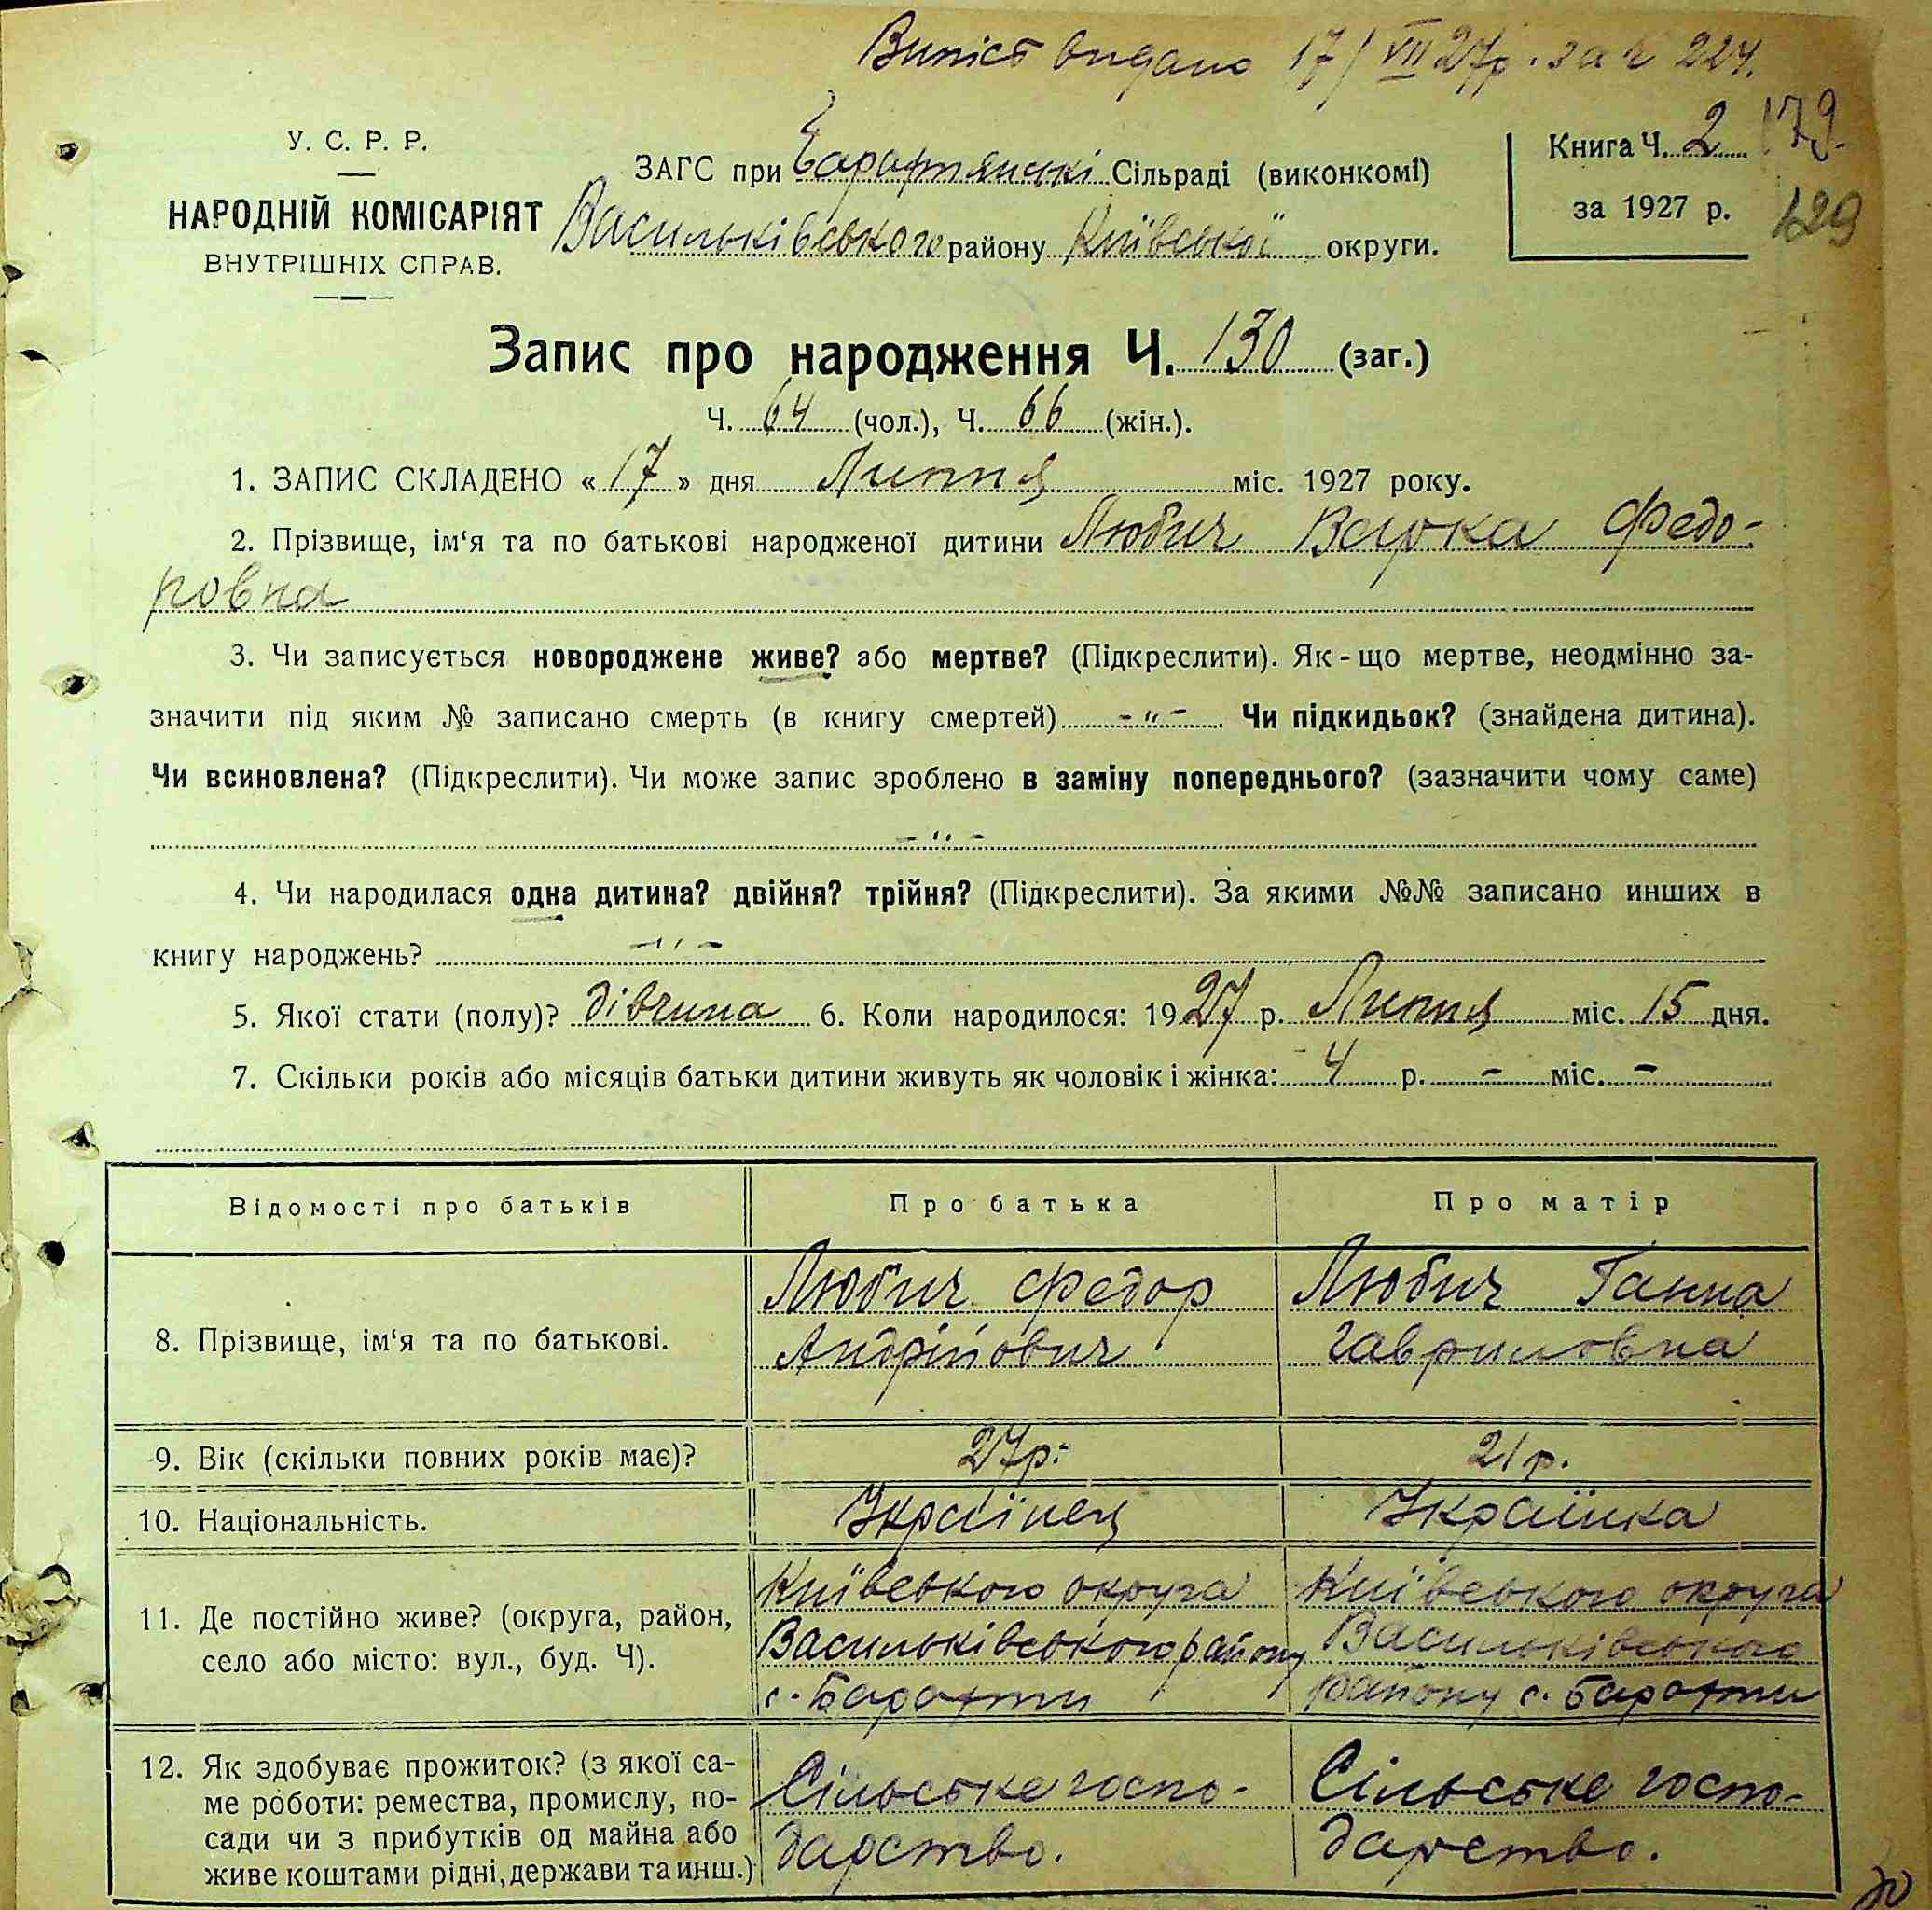 Випис видано 17/VII 27р. за ч 224.
У. С. Р. Р.
НАРОДНІЙ КОМІСАРІЯТ
ВНУТРІШНІХ СПРАВ.
ЗАГС при Барахтянські Сільраді (виконкомі)
Васильківського району Київської округи.
Книга Ч. 2
за 1927 р.
179
129
Запис про народження Ч. 130 (заг.)
Ч. 64 (чол.), Ч. 66 (жін.).
1. ЗАПИС СКЛАДЕНО « 17 » дня Липня міс. 1927 року.
2. Прізвище, ім'я та по батькові народженої дитини Любич Вєрка Федо-
ровна
3. Чи записується новороджене живе? або мертве? (Підкреслити). Як-що мертве, неодмінно за-
значити під яким № записано смерть (в книгу смертей) -"- Чи підкидьок? (знайдена дитина).
Чи всиновлена? (Підкреслити). Чи може запис зроблено в заміну попереднього? (зазначити чому саме)
-"-
4. Чи народилася одна дитина? двійня? трійня? (Підкреслити). За якими №№ записано инших в
книгу народжень? -"-
5. Якої стати (полу)? дівчина 6. Коли народилося: 1927 р. Липня міс. 15 дня.
7. Скільки років або місяців батьки дитини живуть як чоловік і жінка: 4 р. - міс. -
Відомості про батьків Про батька Про матір
8. Прізвище, ім'я та по батькові.
Любич Федор
Андрійович
Любич Ганна
Гавриловна
9. Вік (скільки повних років має)? 27р. 21р.
10. Національність. Українец Українка
11. Де постійно живе? (округа, район,
село або місто: вул., буд. Ч).
Київського округа
Васильківського району
с. Барахти
Київського округа
Васильківського
району с. Барахти
12. Як здобуває прожиток? (з якої са-
ме роботи: ремества, промислу, по-
сади чи з прибутків од майна або
живе коштами рідні, держави та инш.)
Сільське госпо-
дарство.
Сільське госпо-
дарство.